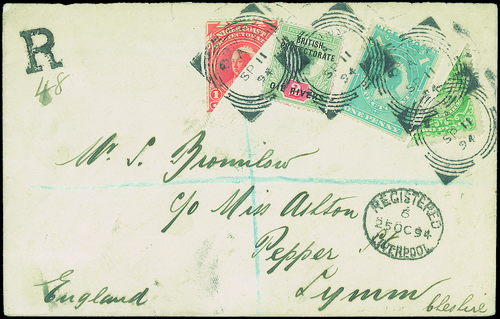 R
48
NIGER COAST
PROTECTORATE
BRITISH
PROTECTORATE
OIL RIVERS
ONE PENNY
SP 11
94
SP 11
94
SP 11
94
Mr. S. Bromilow
c/o Miss Ashton
Pepper St
Lymm
Cheshire
England
REGISTERED
6
25 OC 94
LIVERPOOL